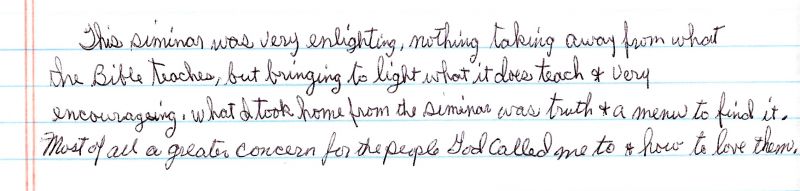 This siminar was very enlighting, nothing taking away from what
the Bible teaches, but bringing to light what it does teach & very
encourageing. what I took home from the siminar was truth & a menu to find it.
Most of all a greater concern for the people God called me to & how to love them.